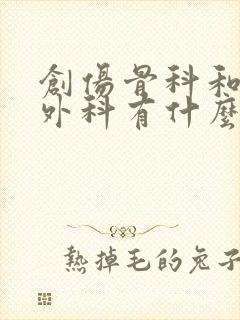 創傷骨科和
外科有什麼
熱掉毛的兔子